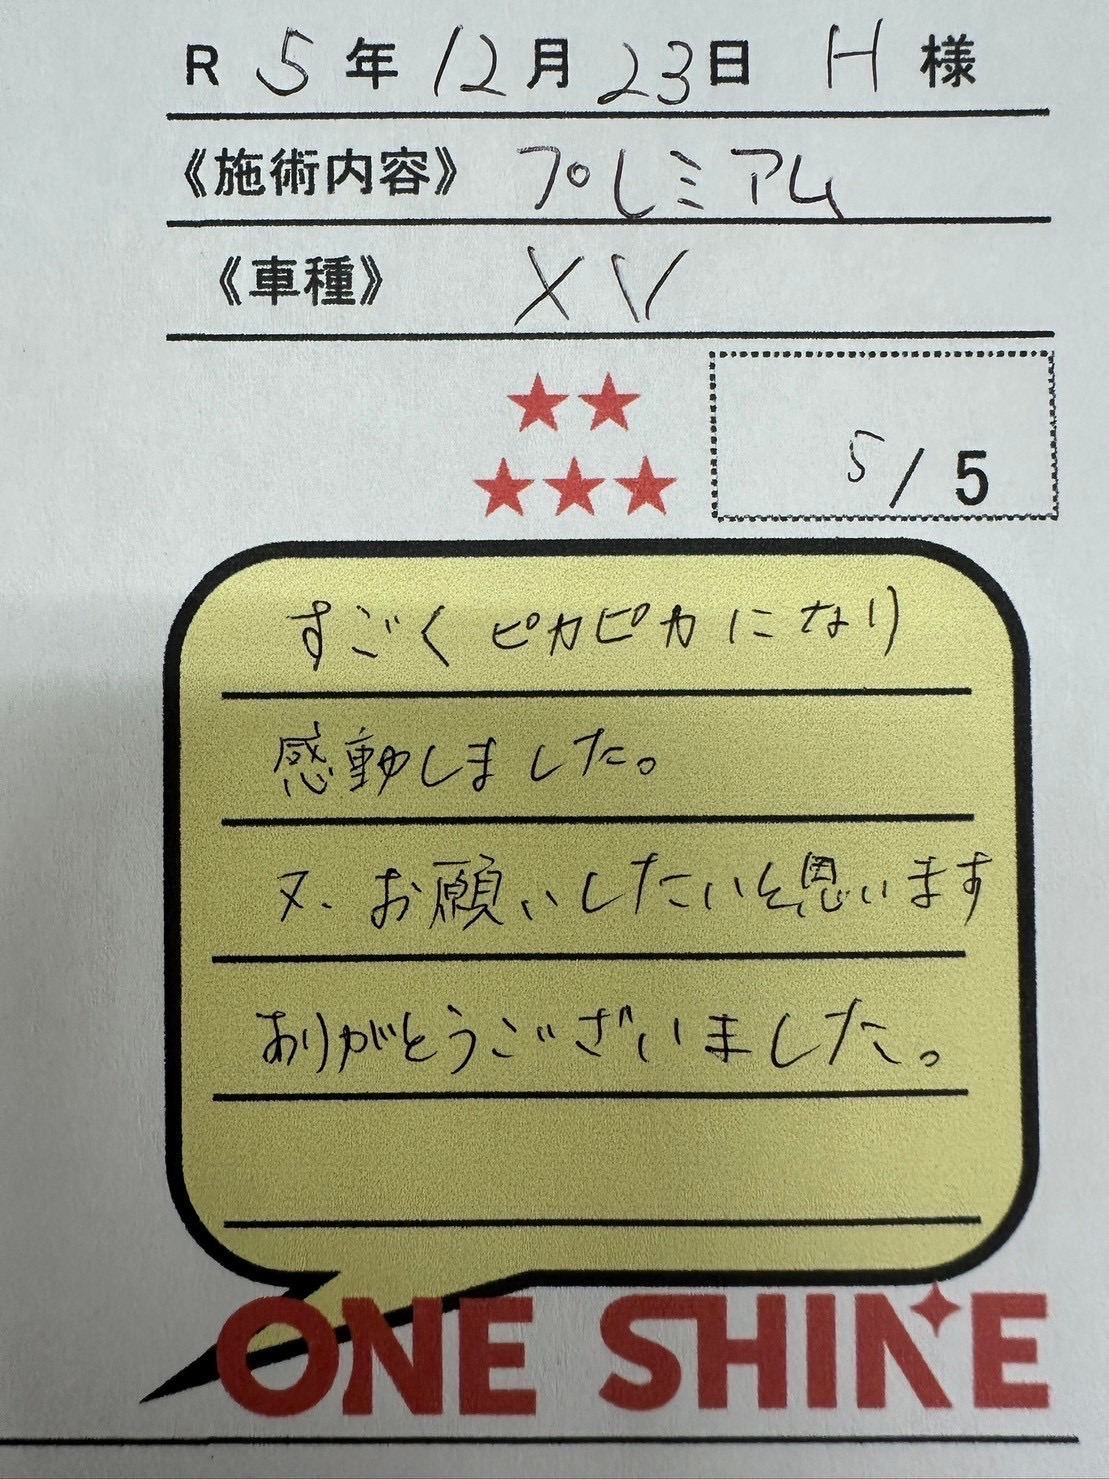 R 5年 12月 23日 H 様
《施術内容》 プレミアム
《車種》 XV
5/5
すごくピカピカになり
感動しました。
又、お願いしたいと思います
ありがとうございました。
ONE SHINE